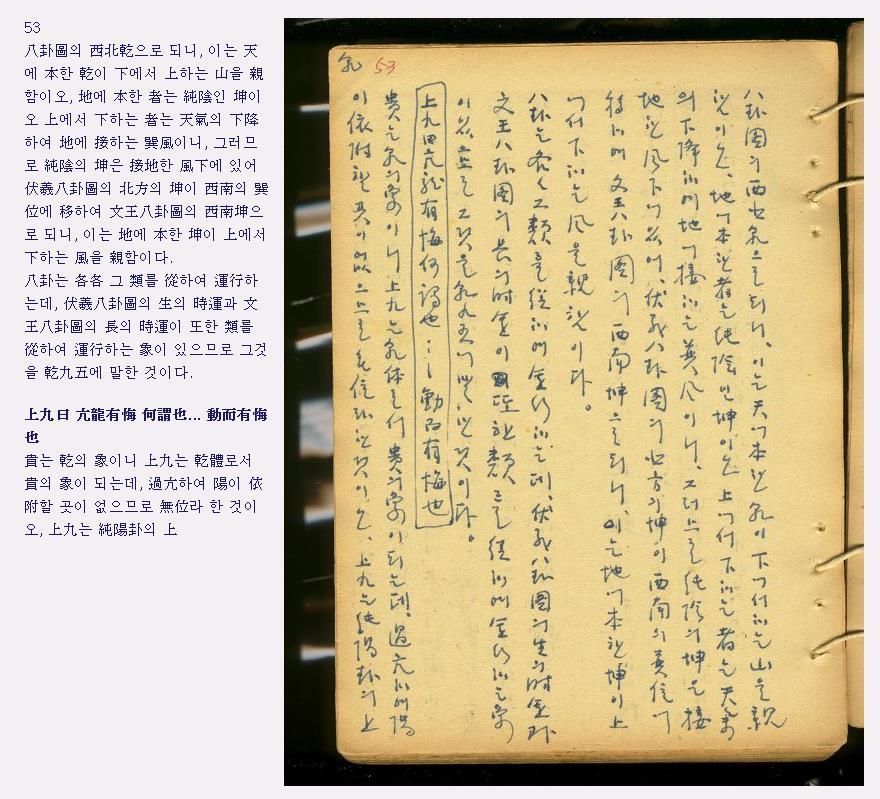 53
八卦圖의 西北乾으로 되니, 이는 天
에 本한 乾이 下에서 上하는 山을 親
함이오, 地에 本한 者는 純陰인 坤이
오 上에서 下하는 者는 天氣의 下降
하여 地에 接하는 巽風이니, 그러므
로 純陰의 坤은 接地한 風下에 있어
伏羲八卦圖의 北方의 坤이 西南의 巽
位에 移하여 文王八卦圖의 西南坤으
로 되니, 이는 地에 本한 坤이 上에서
下하는 風을 親함이다.
八卦는 各各 그 類를 從하여 運行하
는데, 伏羲八卦圖의 生의 時運과 文
王八卦圖의 長의 時運이 또한 類를
從하여 運行하는 象이 있으므로 그것
을 乾九五에 말한 것이다.
上九曰 亢龍有悔 何謂也... 動而有悔
也
貴는 乾의 象이니 上九는 乾體로서
貴의 象이 되는데, 過亢하여 陽이 依
附할 곳이 없으므로 無位라 한 것이
오, 上九는 純陽卦의 上
乾 53
八卦圖의 西北乾으로 되니, 이는 天에 本한 乾이 下에서 上하는 山을 親
함이오, 地에 本한 者는 純陰인 坤이오 上에서 下하는 者는 天氣
의 下降하여 地에 接하는 巽風이니, 그러므로 純陰의 坤은 接
地한 風下에 있어, 伏羲八卦圖의 北方의 坤이 西南의 巽位에
移하여 文王八卦圖의 西南坤으로 되니, 이는 地에 本한 坤이 上
에서 下하는 風을 親함이다.
八卦는 各各 그 類를 從하여 運行하는데, 伏羲八卦圖의 生의 時運과
文王八卦圖의 長의 時運이 또한 類를 從하여 運行하는 象
이 있으므로 그것을 乾九五에 말한 것이다.
上九曰亢龍有悔何謂也……動而有悔也
貴는 乾의 象이니 上九는 乾體로서 貴의 象이 되는데, 過亢하여 陽
이 依附할 곳이 없으므로 無位라 한 것이오, 上九는 純陽卦의 上